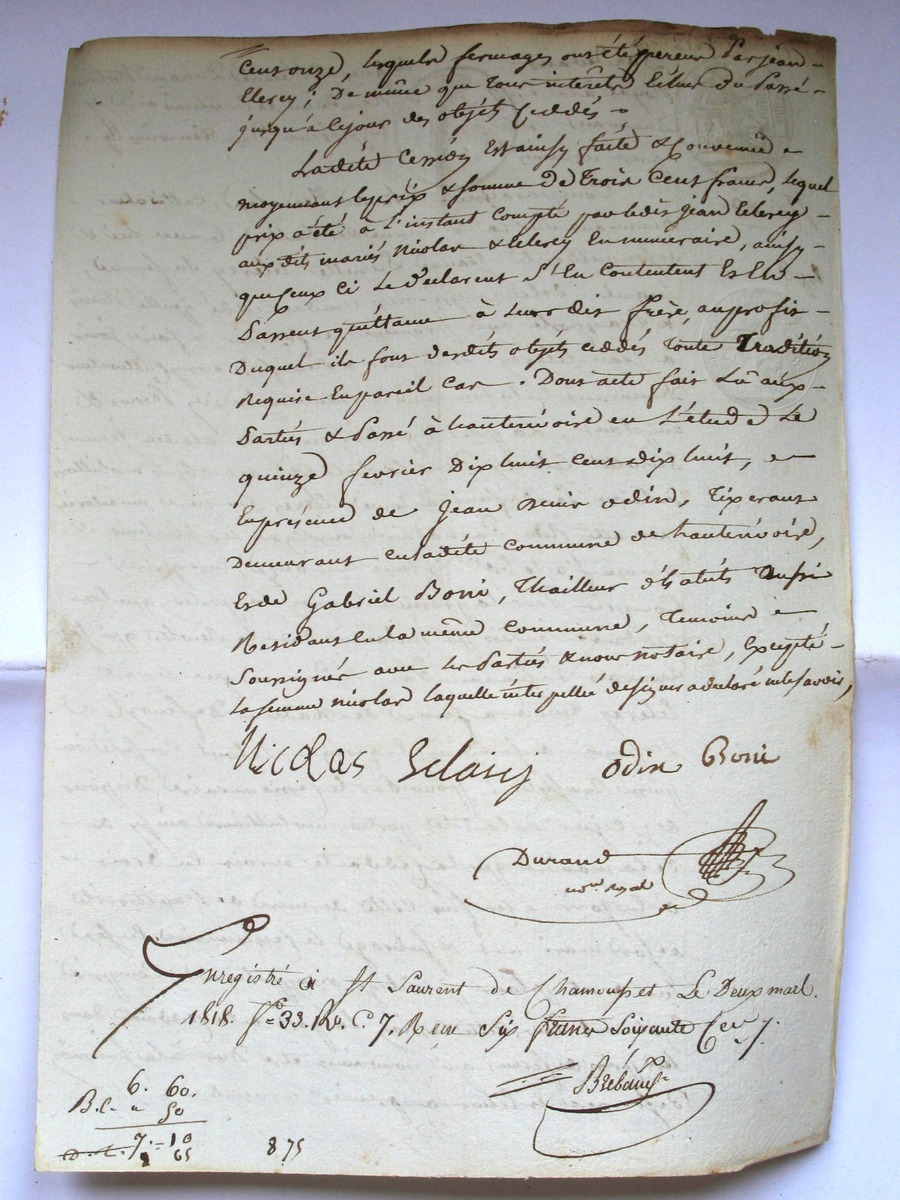 Cent onze, lesquels fermages ont été perçeus Par jean
Clerey, De même que tous interêts Echus du Passé
jusqu'à ce jour des objets Ceddés.
Ladite Cession Est ainsy faite & Convenue
moyennant le prix & somme De Trois Cent francs, lequel
prix a été à L'instant Compté par ledit jean Clerey
aux dits mariés Nicolas & Clerey En numeraire, ainsy
que Ceux Ci le Declarent S'En Contentent Et En
Passent quittance à Leurdit frère, au profit
Duquel ils font desdits objets ceddés Toute Tradition
Requise En pareil Cas. Dont acte fait Lû aux
Parties & Passé à hauterivoire en L'étude Le
quinze fevrier Dix huit cent dix huit,
En présence de jean Denis odin, Tixerant
Demeurant en ladite commune de hauterivoire,
Et de Gabriel Boni, Thailleur d'habits Aussi
Residant En la même commune, Temoins
Soussignés avec les Parties & nous notaire, Excepté
la femme nicolas laquelle interpellée de signer a declaré ne le savoir,
Nicolas odin Boni
Durand
not. Royal
Enregistré à St Laurent de Chamousset Le Deux mars
1818. f° 33. Ro. C. 7. Reçu Six francs Soixante Ces.
6. 60.
50
7. 10
65
8 75